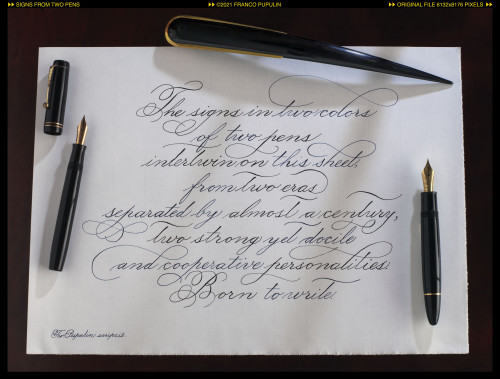 SIGNS FROM TWO PENS
©2021 FRANCO PUPULIN
ORIGINAL FILE 6132x8176 PIXELS
The signs in two colors
of two pens
intertwin on this sheet:
from two eras
separated by almost a century,
two strong yd docile
and cooperative personalities:
Born to write.
Pupulin scripsit.